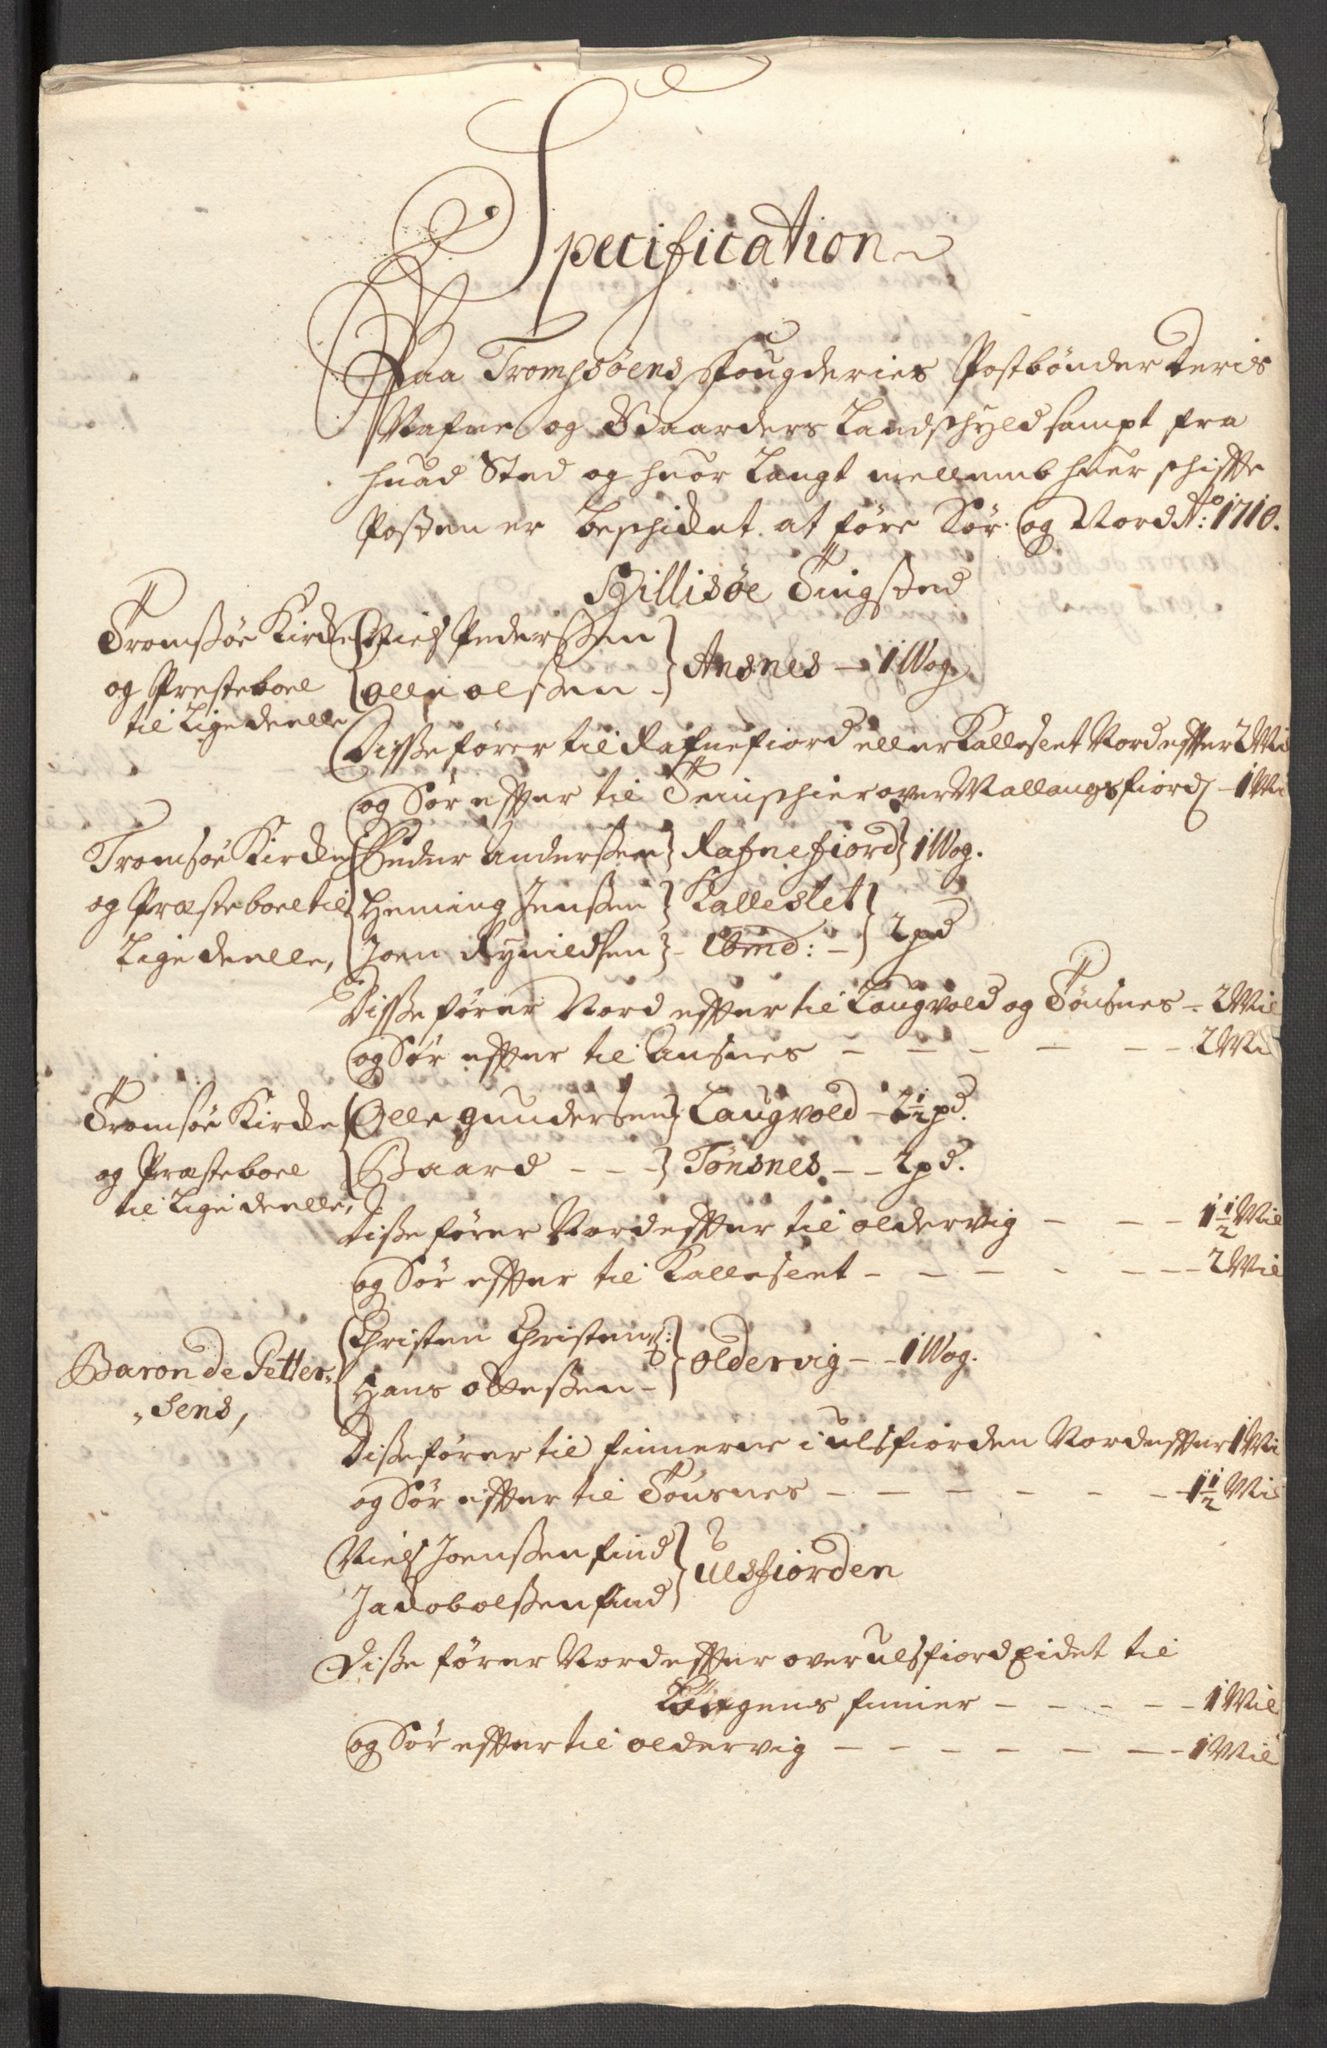 Specification
Paa Trompsøens Fougderies Postbønder Deris
Nafne og Gaarders Landschyld sampt fra
huad Sted og huor Langt mellemb huer schiffte
Posten er beschicket at føre Sør og Nord Ao: 1710.
Hillisøe Tingsted
Tromsøe Kircke
og Presteboel
til Lige deelle
Niels Pederssen
Olle Olssen
Ansnes — 1 Wog.
Disse fører til Rafnefiord eller Kalleslet Nord effter 2 Mil
og Sør effter til Tennschier over Mallangsfiord — 1 Mil
Tromsøe Kircke
og Præsteboel til
Lige deelle,
Peder Anderssen Rafnefiord 1 Wog.
Heming Jenssen Kalleslet
Joen Rynildsen Ibmd: — 2 pd
Disse fører Nord effter til Laugvold og Tønsnes — 2 Mil
og Sør effter til Ansnes — — — — — 2 Mil
Tromsøe Kircke
og Præsteboel
til Lige deelle,
Olle Gundersen Laugvold — 2 1/2 pd.
Baard — — Tønsnes — — 2 pd.
Disse fører Nord effter til Oldervig — — — 1 1/2 Mil
og Sør effter til Kalleslet — — — — — — 2 Mil
Baron de Petter-
sens,
Christen Christens:
Hans Ottessen —
Oldervig — — 1 Wog.
Disse fører til finnerne i Ulsfiorden Nord effter 1 Mil
og Sør effter til Tønsnes — — — — — — 1 1/2 Mil
Niels Joenssen find
Jacob Olssen find
Ulsfiorden
Disse fører Nord effter over Ulsfiord Eidet til
Lyngens finner — — — — — 1 Mil
og Sør effter til Oldervig — — — — — — 1 Mil